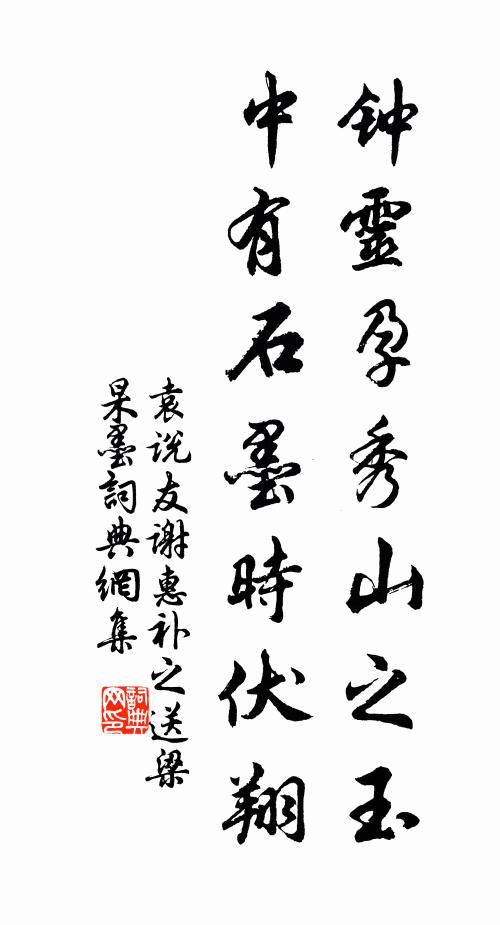 钟靈孕秀山之玉
中有石墨時伏翔
袁说友谢惠补之送梁
杲墨詞典網集
詞典
网印